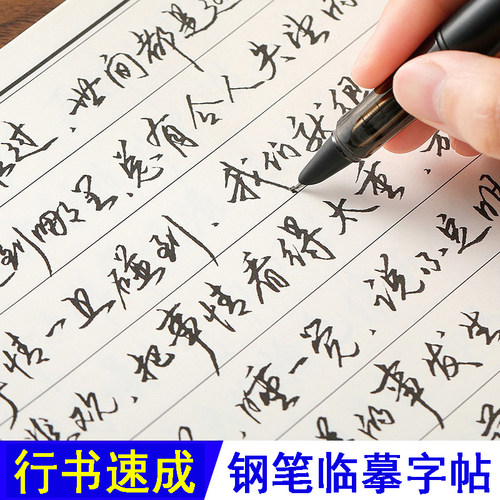 过，世间都是
到哪里，总有令人失望的
情一旦碰到，我们就很
欢，把事情看得太重，
睡一觉，说不定明
的事发生
行书速成 钢笔临摹字帖